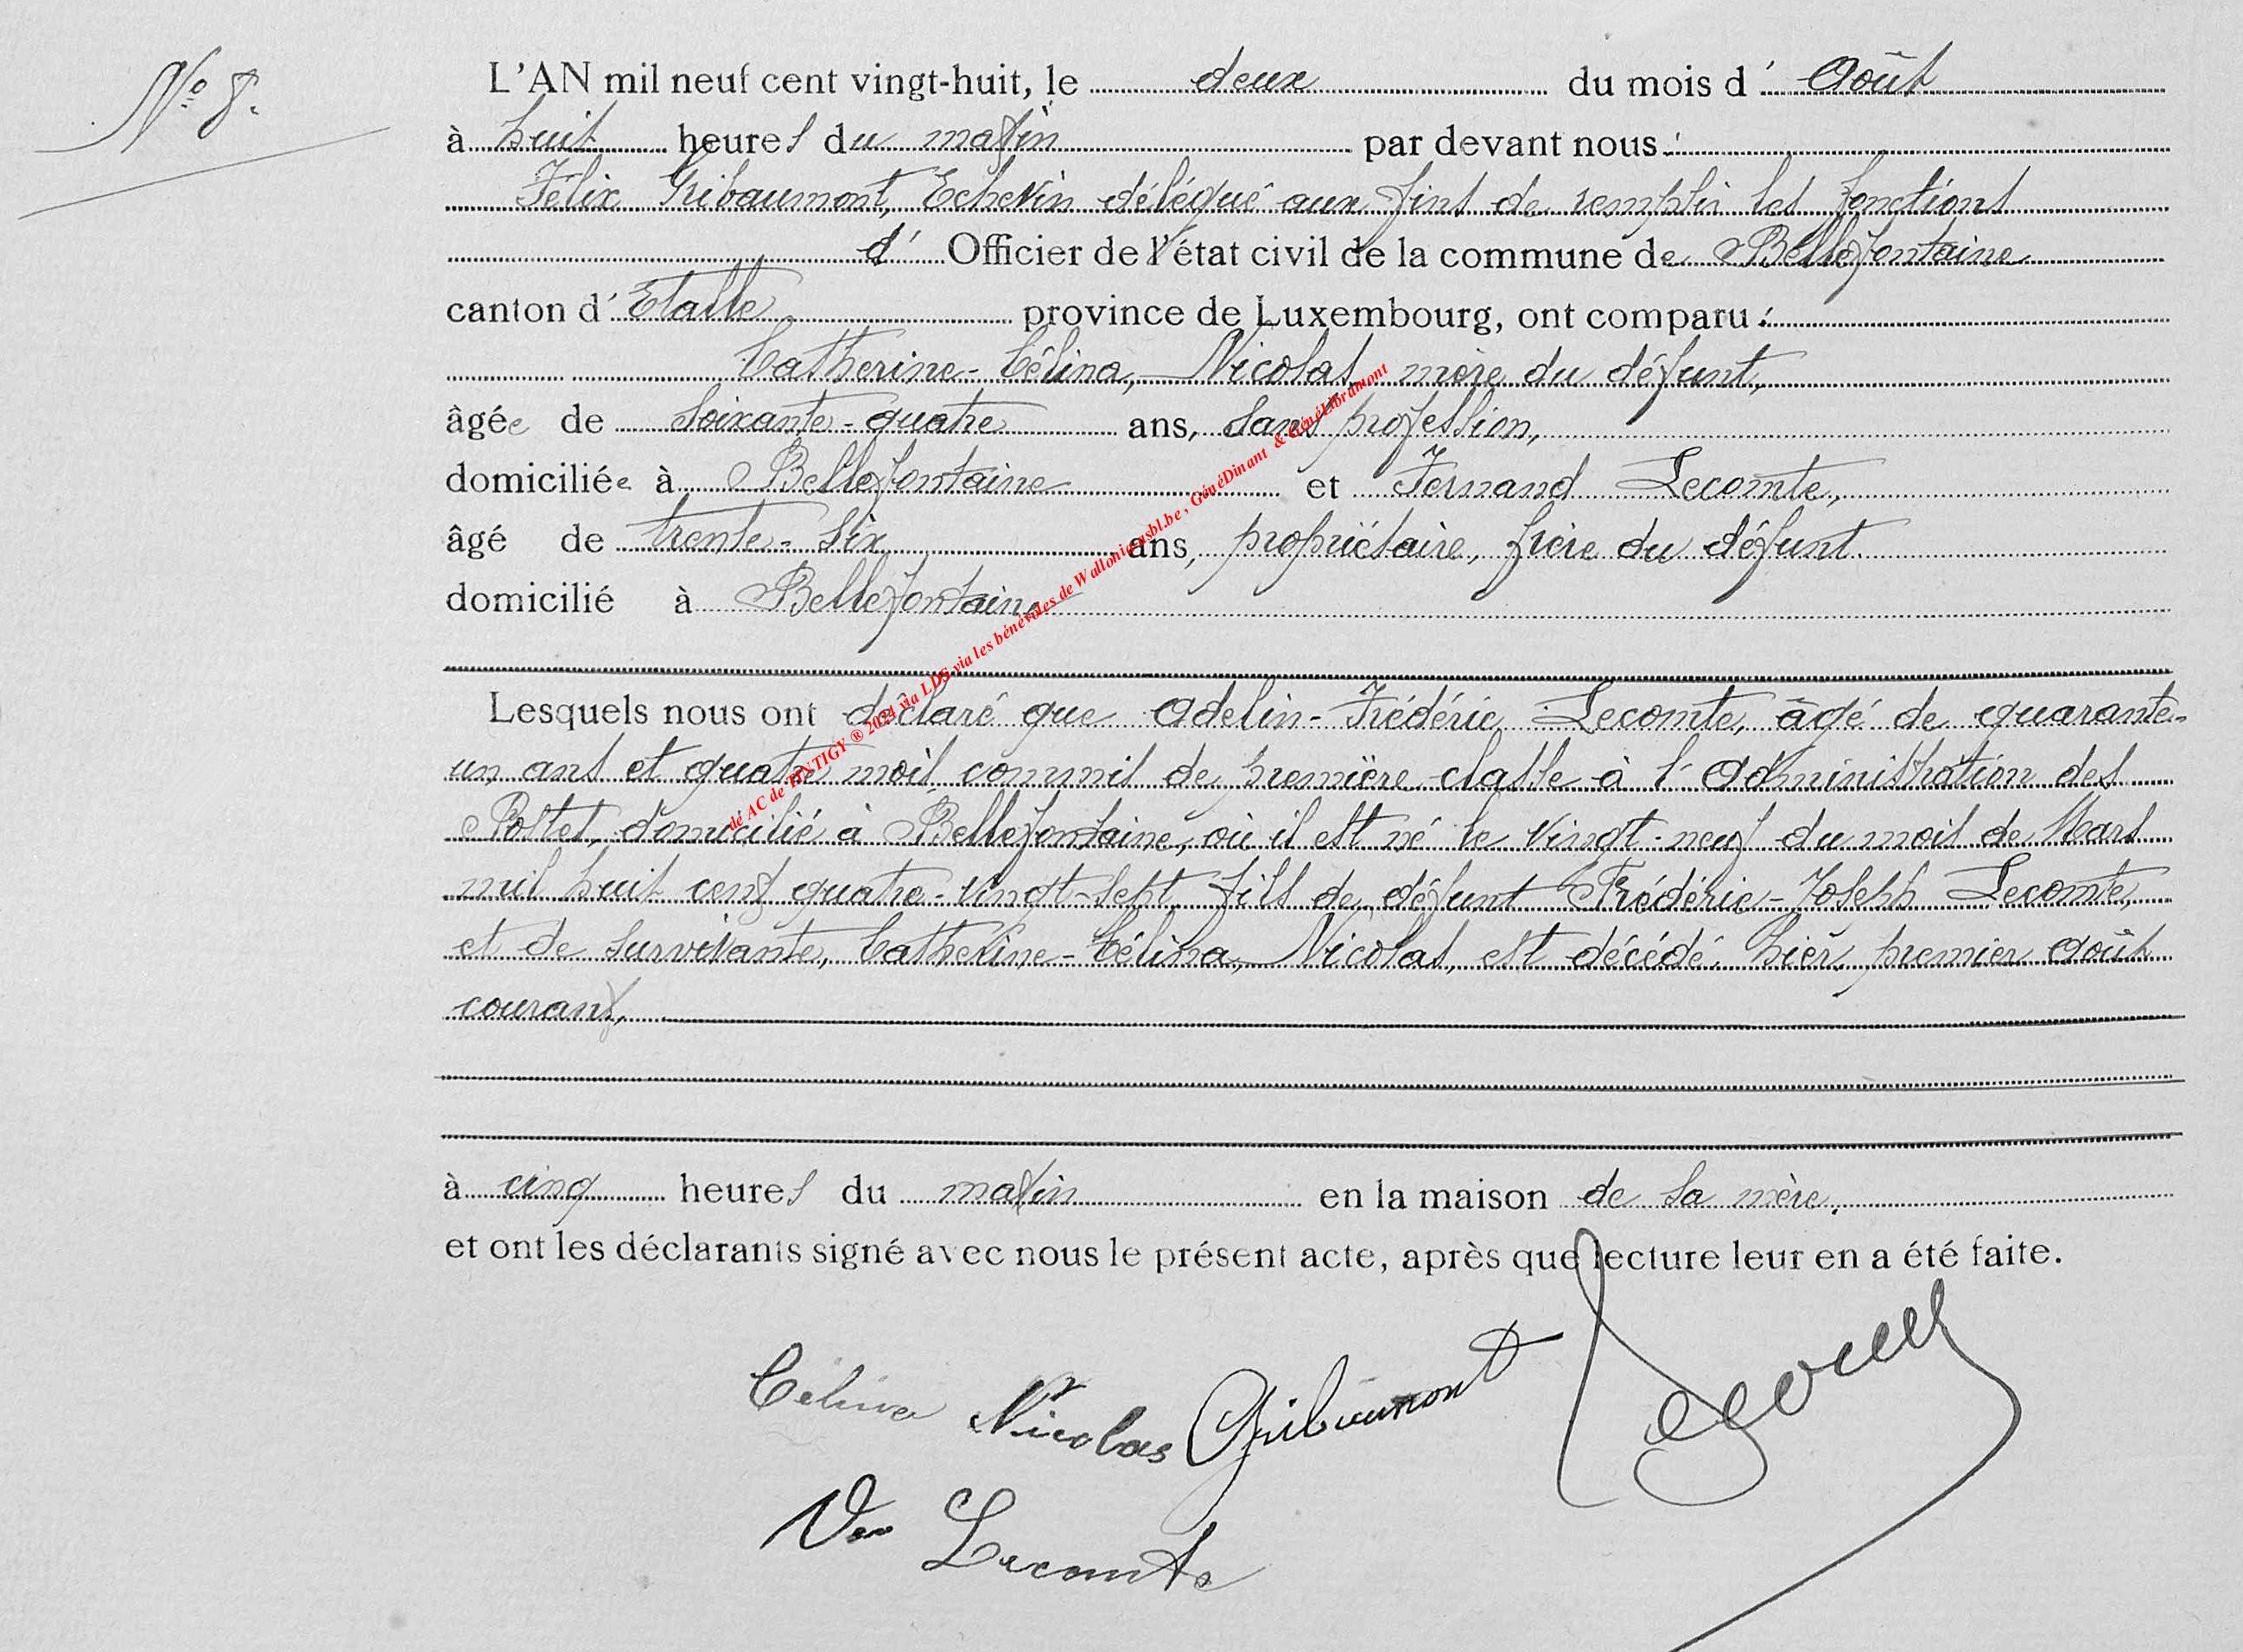 N° 8.
L'AN mil neuf cent vingt-huit, le deux du mois d' Août
à huit heures du matin par devant nous :
Félix Gribaumont, Echevin délégué aux fins de remplir les fonctions
d' Officier de l'état civil de la commune de Bellefontaine
canton d' Etalle province de Luxembourg, ont comparu :
Catherine-Célina, Nicolas, mère du défunt,
âgée de soixante-quatre ans, sans profession,
domiciliée à Bellefontaine et Fernand Lecomte,
âgé de trente-six ans, propriétaire, frère du défunt
domicilié à Bellefontaine
Lesquels nous ont déclaré que Adelin-Frédéric Lecomte, âgé de quarante-
un ans et quatre mois commis de première classe à l'Administration des
Postes, domicilié à Bellefontaine, où il est né le vingt-neuf du mois de Mars
mil huit cent quatre-vingt-sept, fils de défunt Frédéric-Joseph Lecomte,
et de survivante, Catherine-Célina, Nicolas, est décédé hier, premier août
courant,
à cinq heures du matin en la maison de sa mère.
et ont les déclarants signé avec nous le présent acte, après que lecture leur en a été faite.
Célina Nicolas Gribaumont
Ve Lecomte
dé AC de TINTIGY ® 2024 via LDS via les bénévoles de Wallonie asbl.be , GénéDinant & GénéLibramont